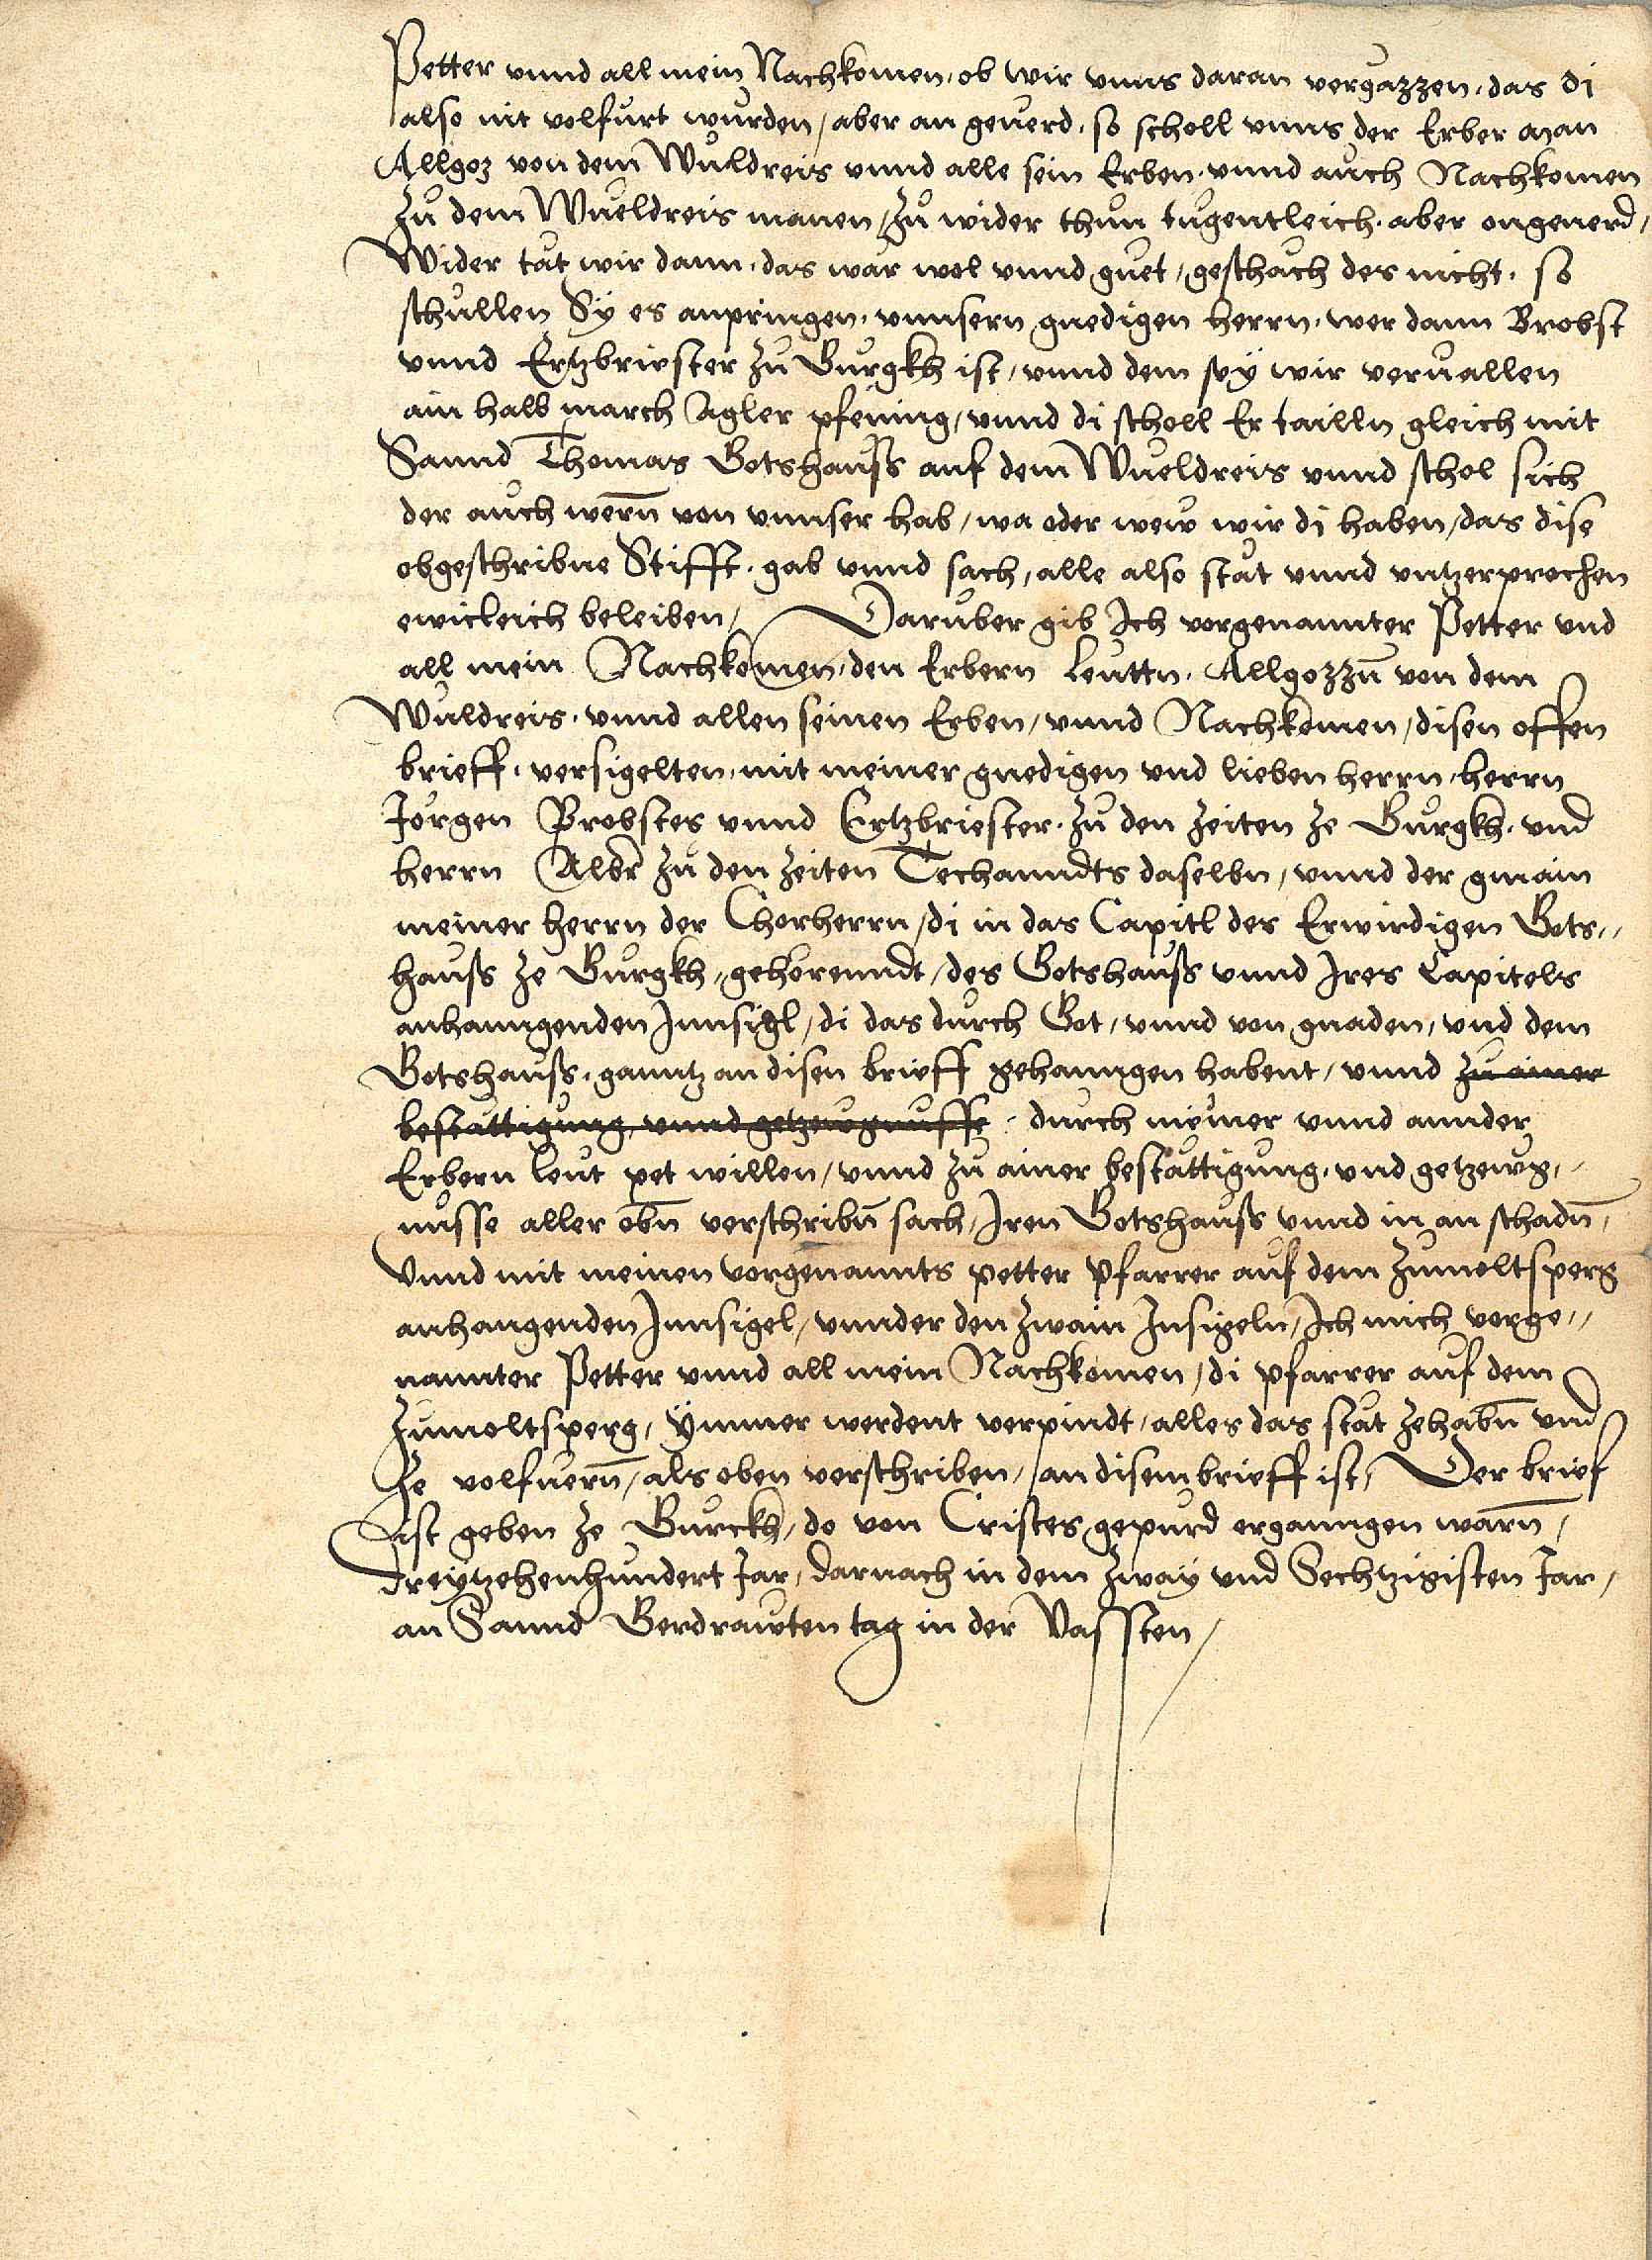 Petter vnnd all mein Nachkomen, ob wir vnns daran vergazzen, das di
also nit volfurt wurden, aber an geuerd, so scholl vnns der Erber man
Allgoz von dem Wuldreis vnnd alle sein Erben, vnnd auch Nachkomen
zu dem Wueldreis manen, zu wider thun tugentleich, aber ongeuerd,
Wider tät wir dann, das wär wol vnnd guet, geschäch des nicht, so
schullen Sy es anpringen, vnnsern gnedigen herrn, wer dann Brobst
vnnd Ertzbriester zu Gurgkh ist, vnnd dem sey wir veruallen
ain halb march Agler pfening, vnnd di scholl Er tailln gleich mit
Sannd Thomas Gotshauss auf dem Wueldreis vnnd schol sich
der auch wern̄ von vnnser hab, wa oder wew wir di haben, das dise
obgeschribne Stifft, gab vnnd sach, alle also stät vnnd vntzerprochen
ewicleich beleiben, Daruber gib Ich vorgenannter Petter vnd
all mein Nachkomen, den Erbern Leuttn, Allgozzn̄ von dem
Wuldreis, vnnd allen seinen Erben, vnnd Nachkomen, disen offen
brieff, versigelten, mit meiner gnedigen vnd lieben herrn, herrn
Jorgen Probstes vnnd Ertzbriester, zu den zeiten ze Gurgkh, vnd
herrn Albr zu den zeiten Techanndts daselbn, vnnd der gmain
meiner herrn der Chorherrn, di in das Capitl des Erwirdigen Gots„
hauss ze Gurgkh, gehörenndt, des Gotshauss vnnd Ires Capitels
anhanngenden Innsigl, di das durch Got, vnnd von gnaden, vnd dem
Gotshauss, ganntz an disen brieff gehanngen habent, vnnd zu ainer
bestättigung, vnnd getzewgnusse, durch meiner vnnd annder
Erbern leut pet willen, vnnd zu ainer bestättigung, vnd getzewg„
nusse aller obn̄ verschribn̄ sach, Iren Gotshauss vnnd in an schadn̄,
Vnnd mit meinen vorgenannts petter Pfarrer auf dem Zumoltsperg
anhangenden Innsigel, vnnder den zwain Insigeln, Ich mich vorge„
nannter Petter vnnd all mein Nachkomen, di pfarrer auf dem
Zumoltsperg, ymmer werdent verpindt, alles das stät zehabn̄ vnd
ze volfuern̄, als oben verschriben, an disem brieff ist, Der brief
ist geben ze Gurckh, do von Cristes gepurd erganngen warn̄,
dreytzehenhundert Jar, darnach in dem zway vnd Sechtzigisten Jar,
an Sannd Gerdrawten tag in der Vassten,